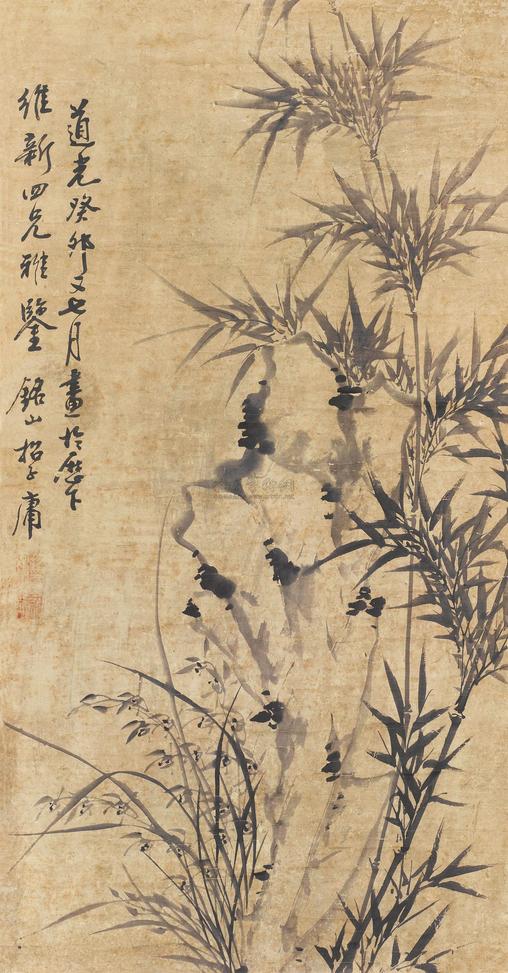 道光癸卯又七月畫於歷下
維新四兄雅鑒 銘山招子庸